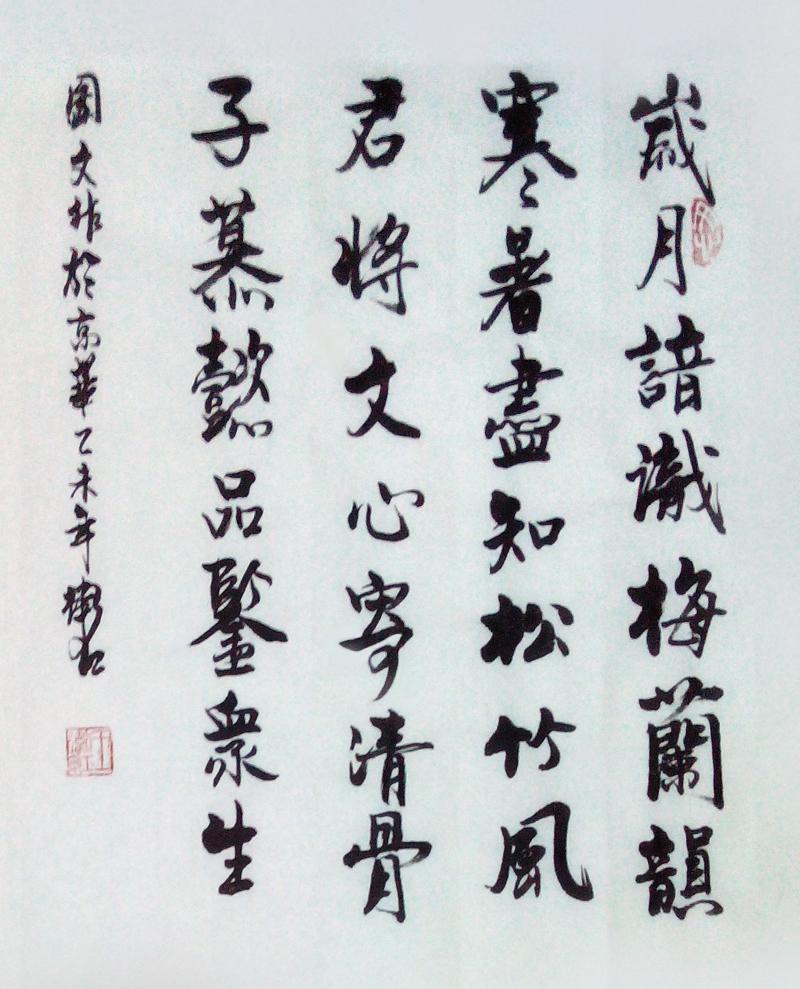 歲月諳識梅蘭韻
寒暑盡知松竹風
君將文心寄清骨
子慕懿品鑒衆生
國文作於京華乙未年